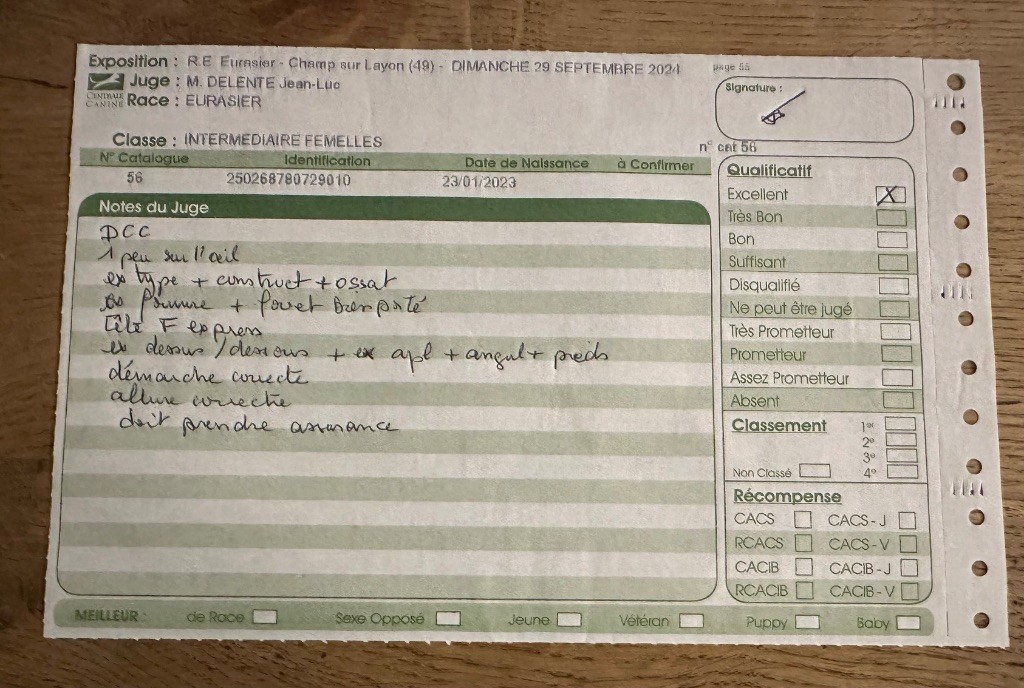 Exposition : R.E Eurasier - Champ sur Layon (49) - DIMANCHE 29 SEPTEMBRE 2024
page 56
CENTRALE CANINE
Juge : M. DELENTE Jean-Luc
Race : EURASIER
Signature :
Classe : INTERMEDIAIRE FEMELLES
n° cat 56
N° Catalogue Identification Date de Naissance à Confirmer
56 250268780729010 23/01/2023
Notes du Juge
DCC
1 peu sur l'œil
ex type + construct + ossat
ex + fouet bien porté
tête F express
ex dessus / dessous + ex apl + angul + pieds
démarche correcte
allure correcte
doit prendre assurance
Qualificatif
Excellent X
Très Bon
Bon
Suffisant
Disqualifié
Ne peut être jugé
Très Prometteur
Prometteur
Assez Prometteur
Absent
Classement 1er
2e
3e
Non Classé 4e
Récompense
CACS CACS-J
RCACS CACS-V
CACIB CACIB-J
RCACIB CACIB-V
MEILLEUR : de Race Sexe Opposé Jeune Vétéran Puppy Baby